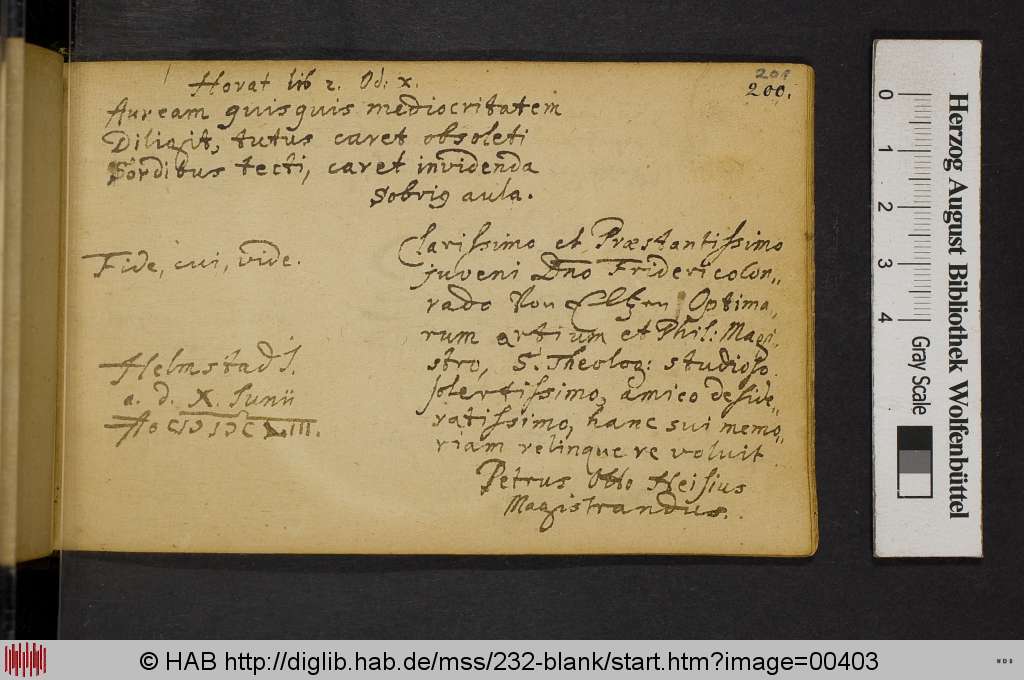 Horat lib 2. Od: x.
201
200.
Auream quisquis mediocritatem
Diligit, tutus caret obsoleti
Sordibus tecti, caret invidenda
Sobrig aula.
Fide, cui, vide.
Clarissimo et Præstantissimo
juveni Dno Friderico Con„
rado Von Eltzen Optima„
rum artium et Phil: Magi„
stro, S. Theolog: studioso
solertissimo, amico deside„
ratissimo, hanc sui memo„
riam relinquere voluit
Petrus Otto Heisius
Magistrandus.
Helmstad I.
a. d. X. Junii
Herzog August Bibliothek Wolfenbüttel
0 1 2 3 4
Gray Scale
© HAB http://diglib.hab.de/mss/232-blank/start.htm?image=00403
HAB